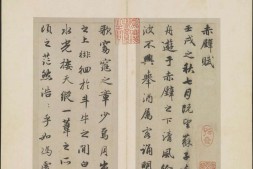 赤壁賦
壬戌之秋七月既望蘇子與
舟遊于赤壁之下清風徐
波不興舉酒屬客誦明
歌窈窕之章少焉月出
之上徘徊於斗牛之間白
水光接天縱一葦之所
頃之茫然浩浩乎如馮虛